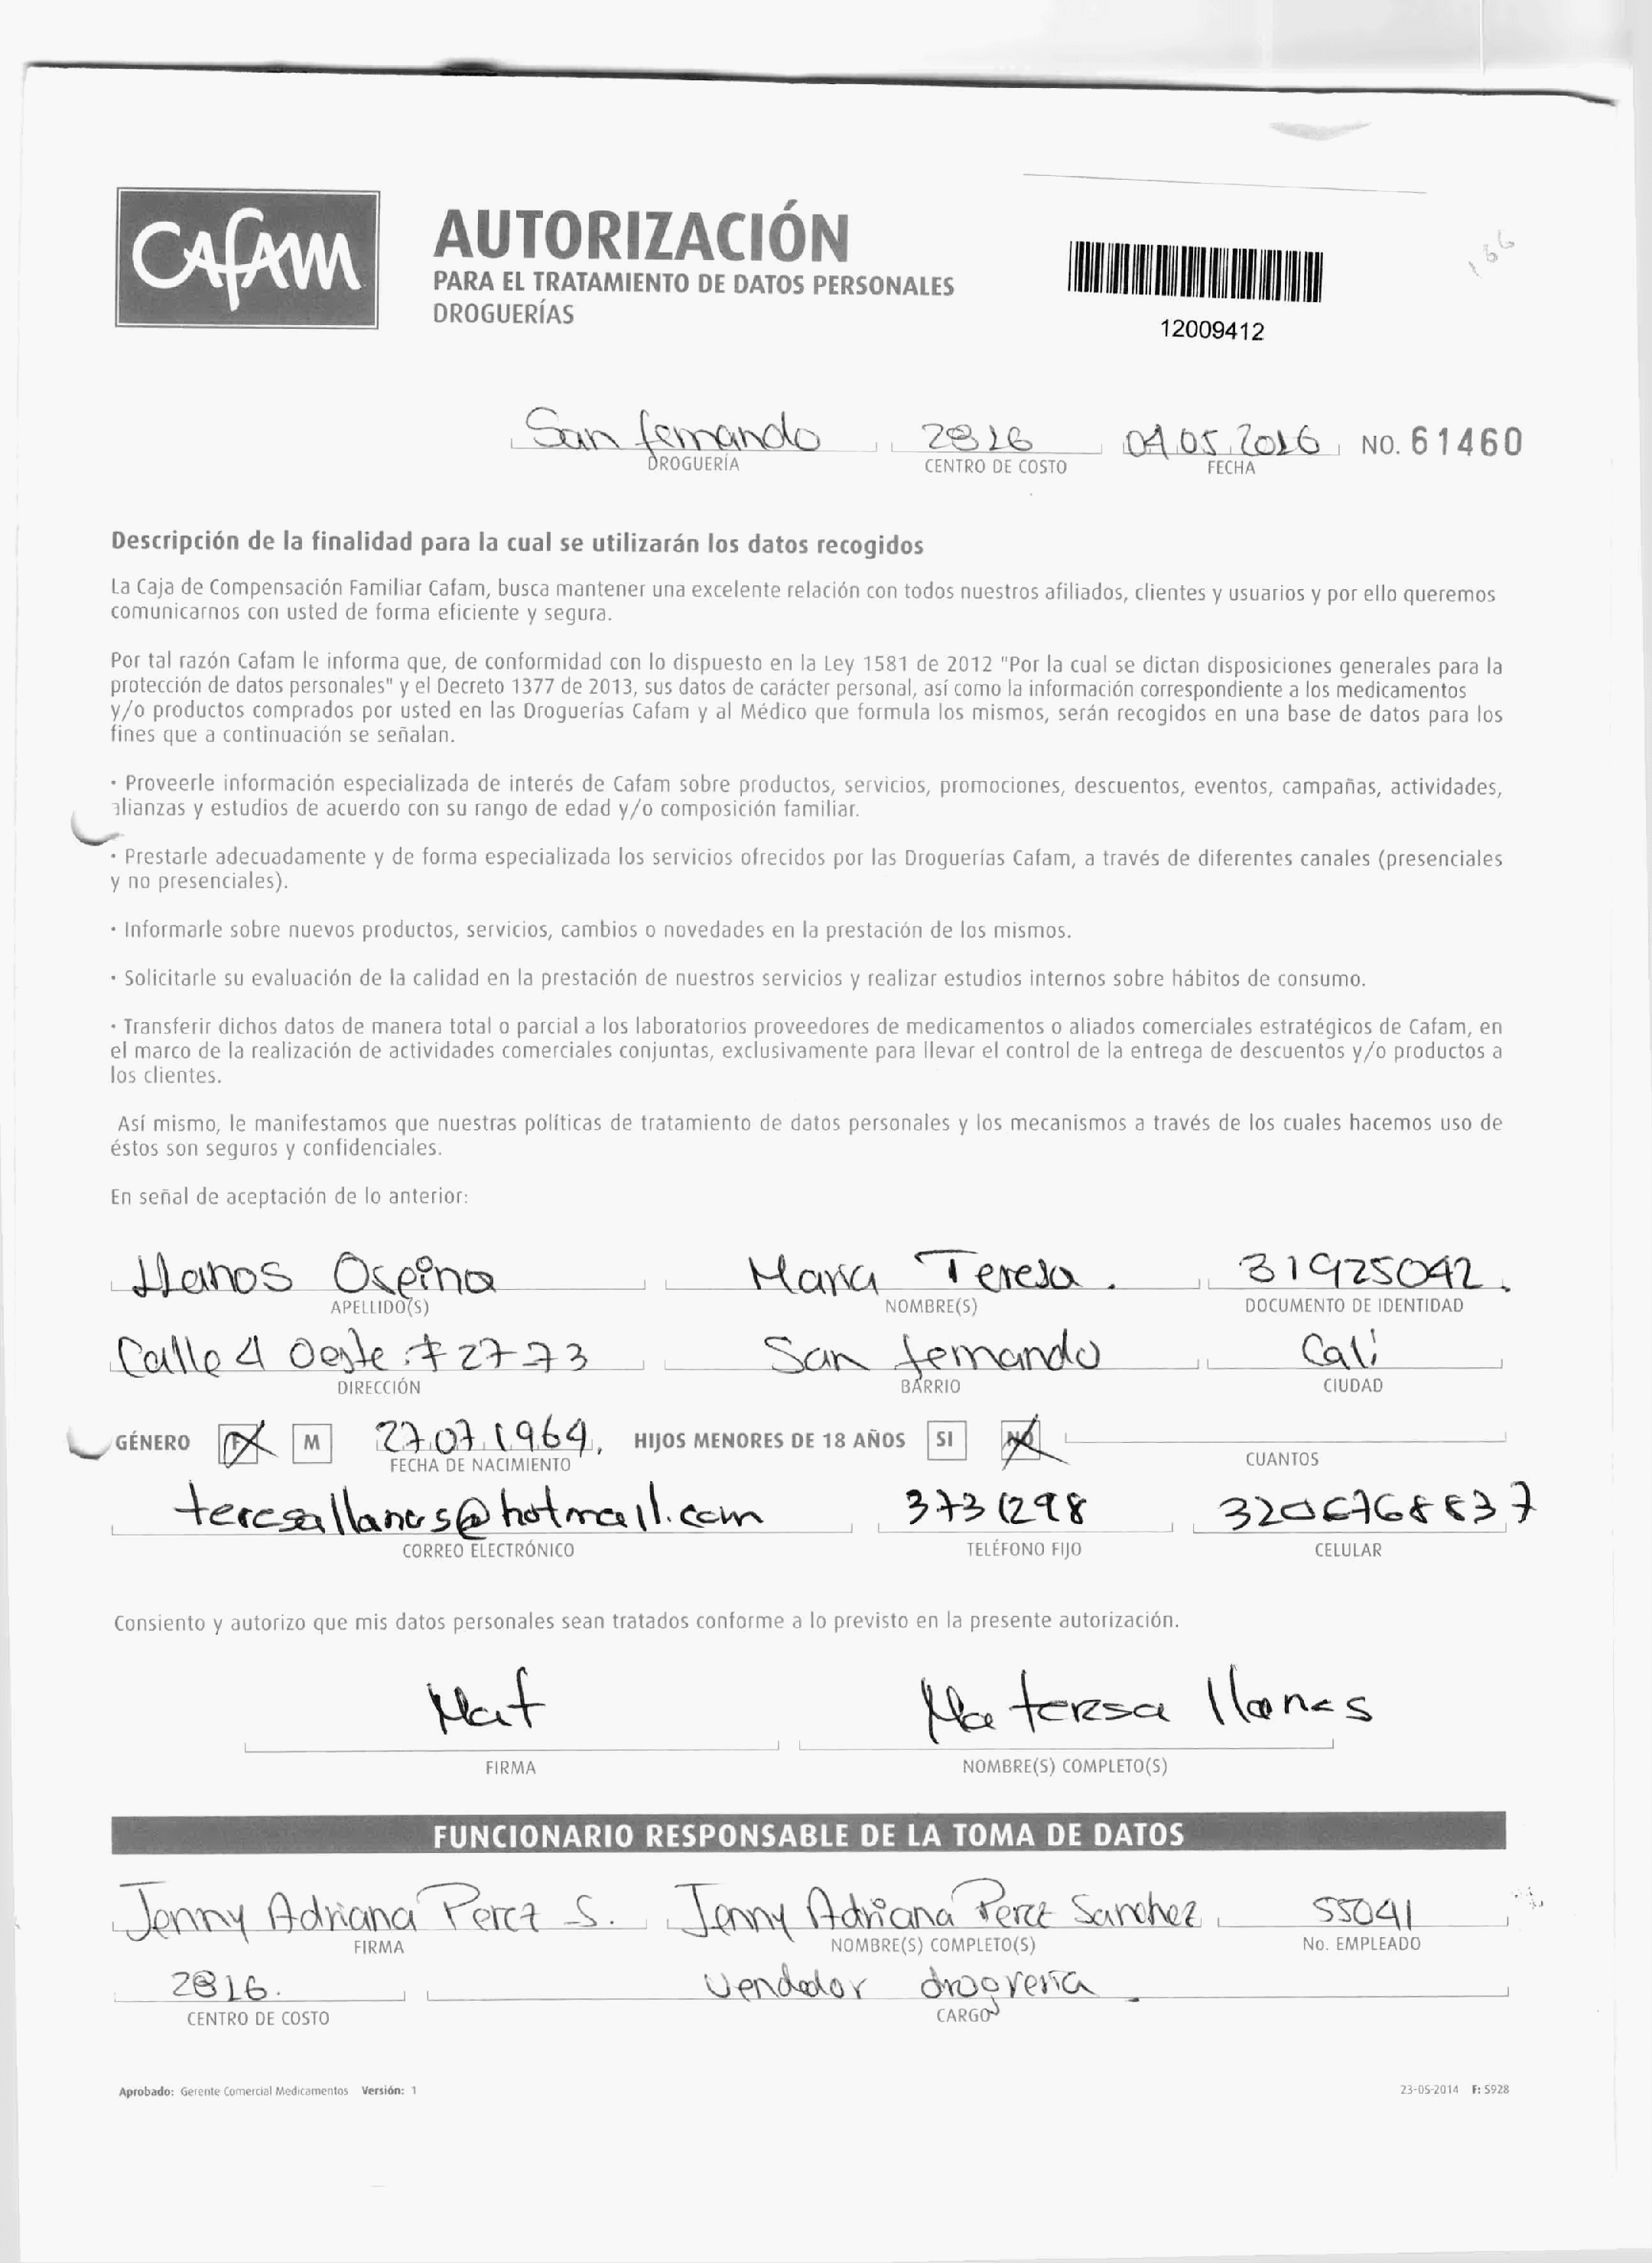 Cafam
AUTORIZACIÓN
PARA EL TRATAMIENTO DE DATOS PERSONALES
DROGUERÍAS
12009412
186
San fernando 2816 04 05 2016 NO. 61460
DROGUERÍA CENTRO DE COSTO FECHA
Descripción de la finalidad para la cual se utilizarán los datos recogidos
La Caja de Compensación Familiar Cafam, busca mantener una excelente relación con todos nuestros afiliados, clientes y usuarios y por ello queremos
comunicarnos con usted de forma eficiente y segura.
Por tal razón Cafam le informa que, de conformidad con lo dispuesto en la Ley 1581 de 2012 "Por la cual se dictan disposiciones generales para la
protección de datos personales" y el Decreto 1377 de 2013, sus datos de carácter personal, así como la información correspondiente a los medicamentos
y/o productos comprados por usted en las Droguerías Cafam y al Médico que formula los mismos, serán recogidos en una base de datos para los
fines que a continuación se señalan.
· Proveerle información especializada de interés de Cafam sobre productos, servicios, promociones, descuentos, eventos, campañas, actividades,
alianzas y estudios de acuerdo con su rango de edad y/o composición familiar.
· Prestarle adecuadamente y de forma especializada los servicios ofrecidos por las Droguerías Cafam, a través de diferentes canales (presenciales
y no presenciales).
· Informarle sobre nuevos productos, servicios, cambios o novedades en la prestación de los mismos.
· Solicitarle su evaluación de la calidad en la prestación de nuestros servicios y realizar estudios internos sobre hábitos de consumo.
· Transferir dichos datos de manera total o parcial a los laboratorios proveedores de medicamentos o aliados comerciales estratégicos de Cafam, en
el marco de la realización de actividades comerciales conjuntas, exclusivamente para llevar el control de la entrega de descuentos y/o productos a
los clientes.
Así mismo, le manifestamos que nuestras políticas de tratamiento de datos personales y los mecanismos a través de los cuales hacemos uso de
éstos son seguros y confidenciales.
En señal de aceptación de lo anterior:
Llanos Ospina Maria Teresa . 31925042.
APELLIDO(S) NOMBRE(S) DOCUMENTO DE IDENTIDAD
Calle 4 Oeste # 27-73 San fernando Cali
DIRECCIÓN BARRIO CIUDAD
GÉNERO F M 27.07.1964. HIJOS MENORES DE 18 AÑOS SI NO
FECHA DE NACIMIENTO CUANTOS
teresallanos@hotmail.com 3731298 3206768837
CORREO ELECTRÓNICO TELÉFONO FIJO CELULAR
Consiento y autorizo que mis datos personales sean tratados conforme a lo previsto en la presente autorización.
Mat Ma teresa llanos
FIRMA NOMBRE(S) COMPLETO(S)
FUNCIONARIO RESPONSABLE DE LA TOMA DE DATOS
Jenny Adriana Perez S. Jenny Adriana Perez Sanchez 55041
FIRMA NOMBRE(S) COMPLETO(S) No. EMPLEADO
2816. Vendedor drogueria
CENTRO DE COSTO CARGO
Aprobado: Gerente Comercial Medicamentos Versión: 1 23-05-2014 F: 5928